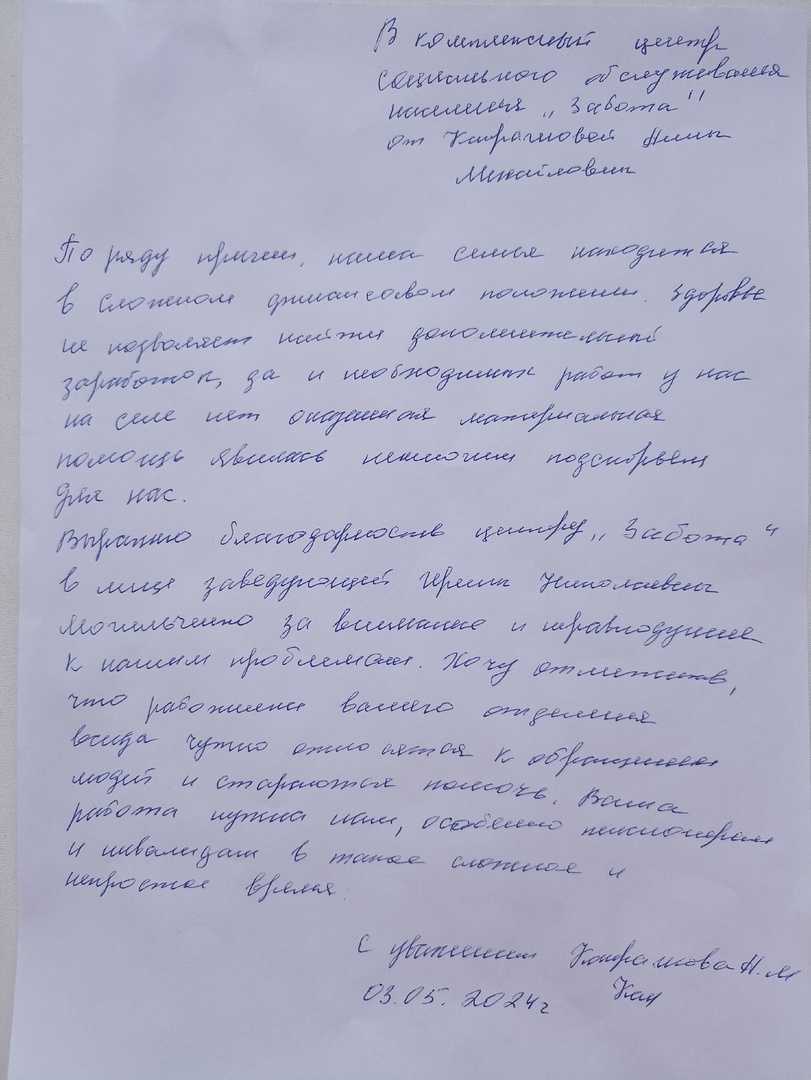 В комплексный центр
социального обслуживания
населения „Забота"
от Нины
Михайловны
По ряду причин, наша семья находится
в сложном финансовом положении. Здоровье
не позволяет найти дополнительный
заработок, да и необходимых работ у нас
на селе нет оказанная материальная
помощь явилась неплохим подспорьем
для нас.
Выражаю благодарность центру „Забота"
в лице заведующей Ирины Николаевны
Могильченко за внимание и неравнодушие
к нашим проблемам. Хочу отметить,
что работники вашего отделения
всегда чутко относятся к обращениям
людей и стараются помочь. Ваша
работа нужна нам, особенно пенсионерам
и инвалидам в такое сложное и
непростое время.
С уважением Н.М
03.05.2024г